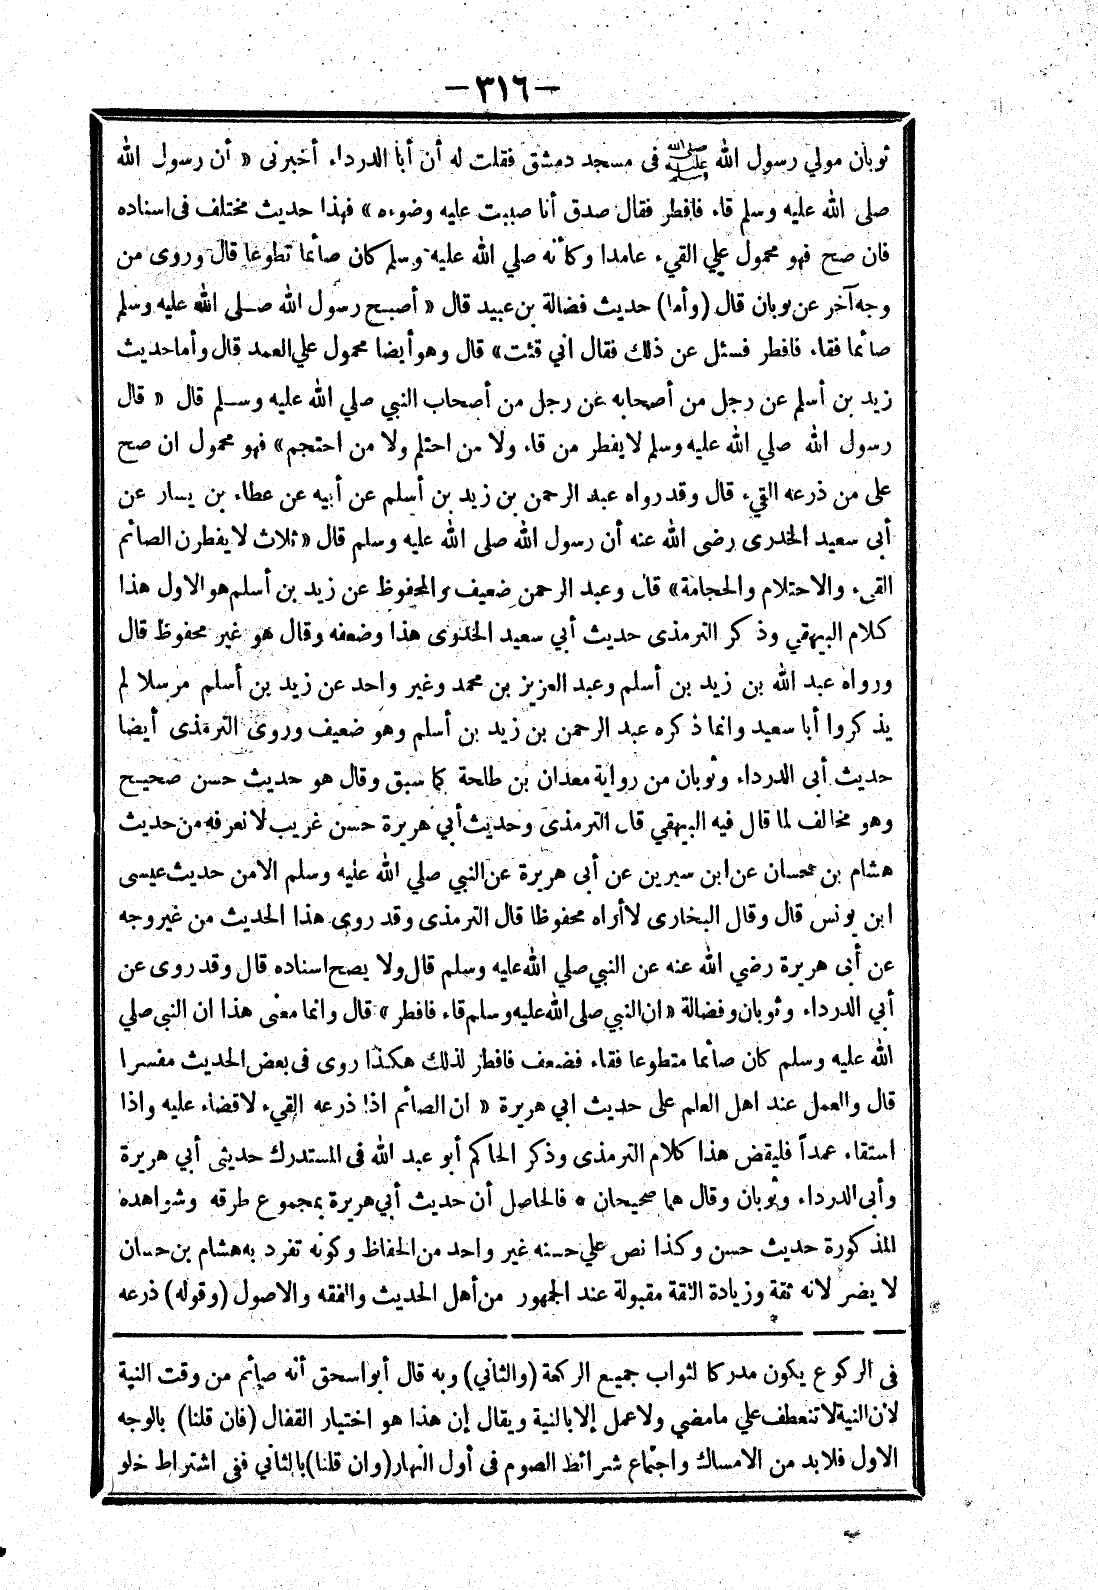 -٣١٦-
ثوبان مولي رسول الله ﷺ فى مسجد دمشق فقلت له أن أبا الدرداء أخبرنى « أن رسول الله
صلى الله عليه وسلم قاء فافطر فقال صدق أنا صببت عليه وضوءه » فهذا حديث مختلف فى اسناده
فان صح فهو محمول علي القيء عامدا وكأنه صلي الله عليه وسلم كان صائما تطوعا قال وروى من
وجه آخر عن ثوبان قال (وأما) حديث فضالة بن عبيد قال « أصبح رسول الله صلى الله عليه وسلم
صائما فقاء فافطر فسئل عن ذلك فقال اني قئت » قال وهو أيضا محمول علي العمد قال وأما حديث
زيد بن أسلم عن رجل من أصحابه عن رجل من أصحاب النبي صلي الله عليه وسلم قال « قال
رسول الله صلي الله عليه وسلم لا يفطر من قاء ولا من احتلم ولا من احتجم » فهو محمول ان صح
على من ذرعه القيء قال وقد رواه عبد الرحمن بن زيد بن أسلم عن أبيه عن عطاء بن يسار عن
أبى سعيد الخدرى رضى الله عنه أن رسول الله صلى الله عليه وسلم قال « ثلاث لا يفطرن الصائم
القيء والاحتلام والحجامة » قال وعبد الرحمن ضعيف والمحفوظ عن زيد بن أسلم هو الاول هذا
كلام البيهقي وذكر الترمذى حديث أبي سعيد الخدوى هذا وضعفه وقال هو غير محفوظ قال
ورواه عبد الله بن زيد بن أسلم وعبد العزيز بن محمد وغير واحد عن زيد بن أسلم مرسلا لم
يذكروا أبا سعيد وانما ذكره عبد الرحمن بن زيد بن أسلم وهو ضعيف وروى الترمذى أيضا
حديث أبى الدرداء وثوبان من رواية معدان بن طلحة كما سبق وقال هو حديث حسن صحيح
وهو مخالف لما قال فيه البيهقي قال الترمذى وحديث أبي هريرة حسن غريب لا نعرفه من حديث
هشام بن حسان عن ابن سيرين عن أبى هريرة عن النبي صلي الله عليه وسلم الا من حديث عيسى
ابن يونس قال وقال البخارى لا أراه محفوظا قال الترمذى وقد روى هذا الحديث من غير وجه
عن أبى هريرة رضي الله عنه عن النبي صلي الله عليه وسلم قال ولا يصح اسناده قال وقد روى عن
أبي الدرداء وثوبان وفضالة « ان النبي صلى الله عليه وسلم قاء فافطر » قال وانما معنى هذا ان النبى صلي
الله عليه وسلم كان صائما متطوعا فقاء فضعف فافطر لذلك هكذا روى فى بعض الحديث مفسرا
قال والعمل عند اهل العلم على حديث ابي هريرة « ان الصائم اذا ذرعه القيء لا قضاء عليه واذا
استقاء عمداً فليقض هذا كلام الترمذى وذكر الحاكم أبو عبد الله فى المستدرك حديثى أبي هريرة
وأبى الدرداء وثوبان وقال هما صحيحان * فالحاصل أن حديث أبي هريرة بمجموع طرقه وشواهده
المذكورة حديث حسن وكذا نص علي حسنه غير واحد من الحفاظ وكونه تفرد به هشام بن حسان
لا يضر لانه ثقة وزيادة الثقة مقبولة عند الجمهور من أهل الحديث والفقه والاصول (وقوله) ذرعه
فى الركوع يكون مدركا لثواب جميع الركعة (والثاني) وبه قال أبو اسحق أنه صائم من وقت النية
لأن النية لا تنعطف علي ما مضي ولا عمل إلا بالنية ويقال إن هذا هو اختيار القفال (فان قلنا) بالوجه
الاول فلابد من الامساك واجتماع شرائط الصوم فى أول النهار (وان قلنا) بالثاني ففى اشتراط خلو